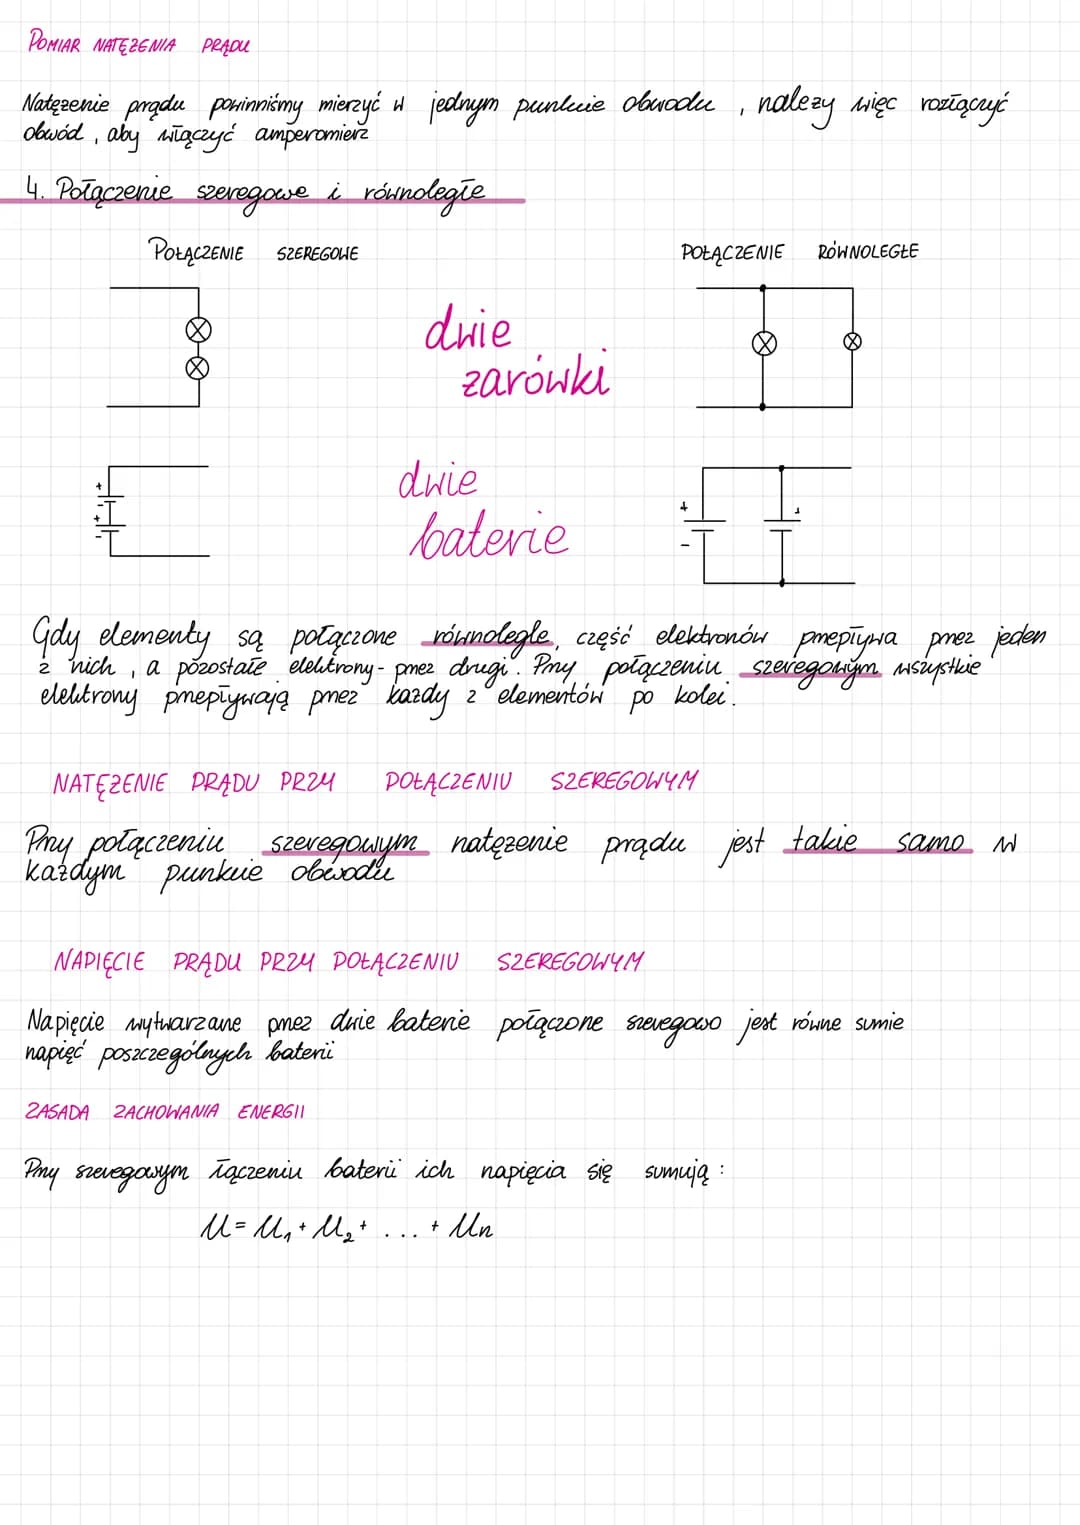 POMIAR NATĘŻENIA PRĄDU
Natężenie prądu powinniśmy mierzyć w jednym punkcie obwodu, należy więc rozłączyć
obwód, aby włączyć amperomierz
4. Połączenie szeregowe i równoległe
POŁĄCZENIE SZEREGOWE
POŁĄCZENIE RÓWNOLEGŁE
dwie
żarówki
dwie
baterie
+
-
+
-
+
-
Gdy elementy są połączone równolegle, część elektronów przepływa przez jeden
z nich, a pozostałe elektrony - przez drugi. Przy połączeniu szeregowym wszystkie
elektrony przepływają przez każdy z elementów po kolei.
NATĘŻENIE PRĄDU PRZY POŁĄCZENIU SZEREGOWYM
Przy połączeniu szeregowym natężenie prądu jest takie samo w
każdym punkcie obwodu
NAPIĘCIE PRĄDU PRZY POŁĄCZENIU SZEREGOWYM
Napięcie wytwarzane przez dwie baterie połączone szeregowo jest równe sumie
napięć poszczególnych baterii
ZASADA ZACHOWANIA ENERGII
Przy szeregowym łączeniu baterii ich napięcia się sumują:
U = U₁ + U₂ + ... + Un